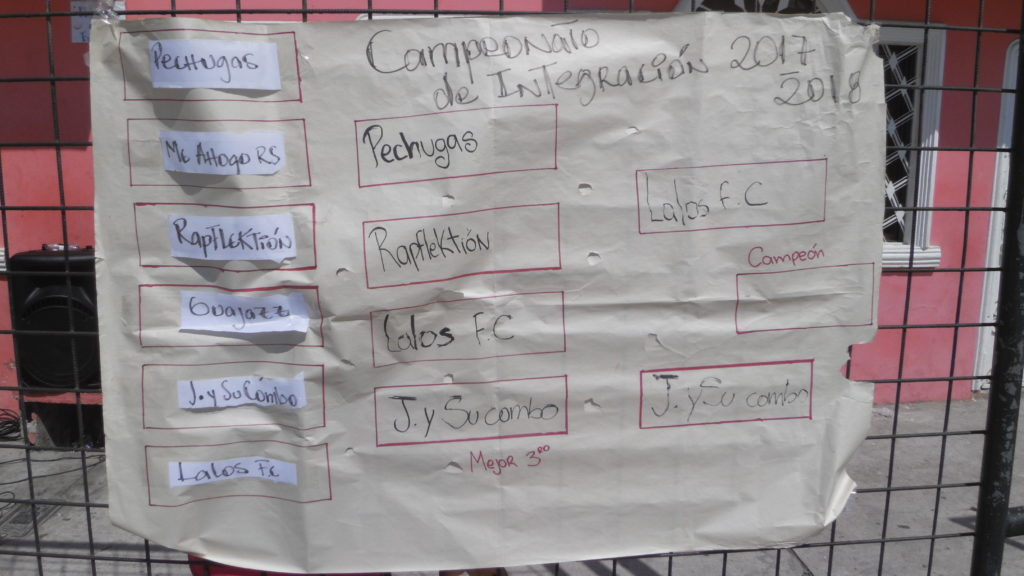 Campeonato
de Integración 2017
2018
Pechugas
Me Ahogo RS
Rapflektión
Guajazz
J. y Su Combo
Lalos Fc
Pechugas
Rapflektión
Lalos F.C
J. y Su combo
Mejor 3ro
Lalos F.C
J. y Su combo
Campeón